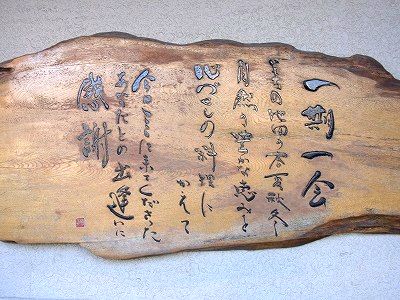 一期一会
池田の春夏秋冬
自然の豊かな恵みを
心づくしの料理に
かえて
今日ここに来てくださった
あなたとの出逢いに
感謝